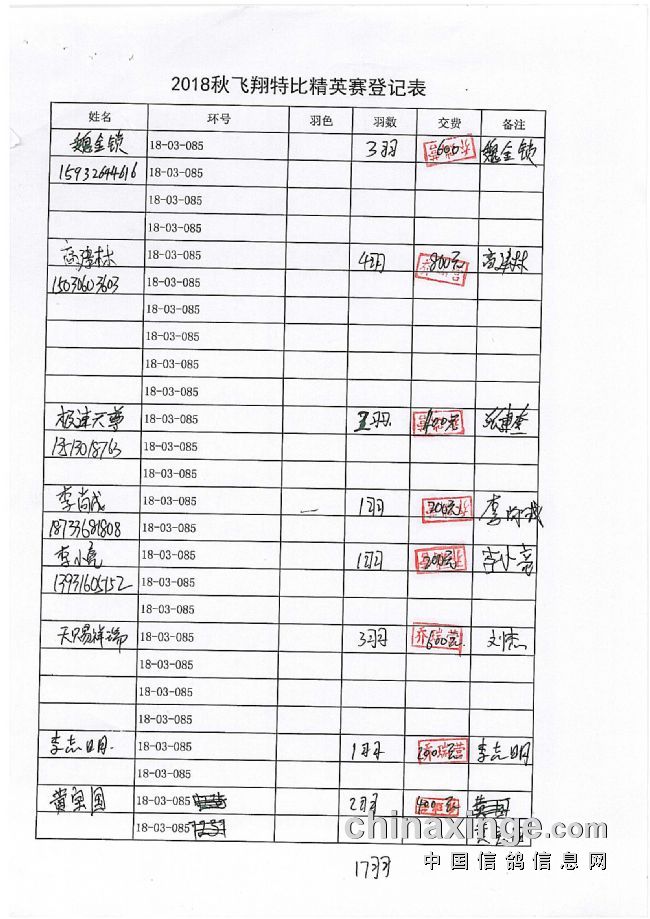 2018秋飞翔特比精英赛登记表
姓名 环号 羽色 羽数 交费 备注
魏全锁 18-03-085 3羽 600 魏全锁
15932644616 18-03-085
18-03-085
18-03-085
高建林 18-03-085 4羽 800元 高建林
15030603603 18-03-085
18-03-085
18-03-085
18-03-085
18-03-085
极速天尊 18-03-085 2羽 400元
18-03-085
18-03-085
李尚成 18-03-085 1羽 200元 李尚成
18733681808 18-03-085
李小亮 18-03-085 1羽 200元 李小亮
13931605152 18-03-085
18-03-085
18-03-085 3羽 600元 刘杰
18-03-085
18-03-085
18-03-085
李志明 18-03-085 1羽 200元 李志明
18-03-085
黄宝国 18-03-085 2羽 400元
18-03-085
17羽
chinaxinge.com
中国信鸽信息网